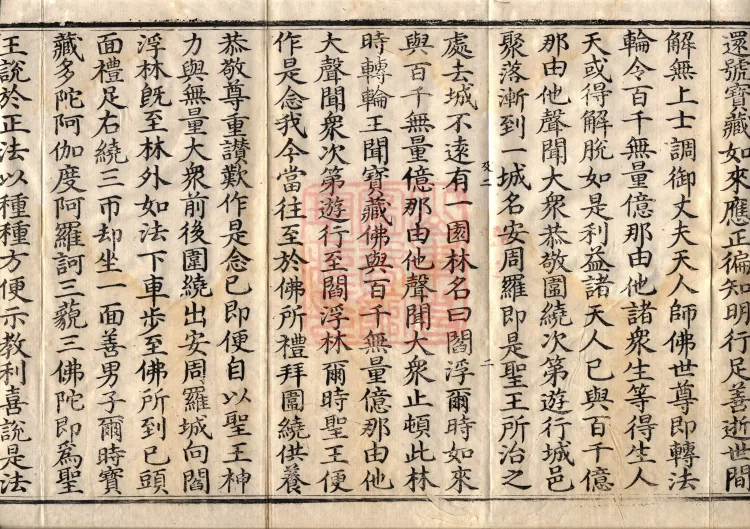 還號寶藏如來應正徧知明行足善逝世間
解無上士調御丈夫天人師佛世尊即轉法
輪令百千無量億那由他諸衆生等得生人
天或得解脫如是利益諸天人已與百千億
那由他聲聞大衆恭敬圍繞次第遊行城邑
聚落漸到一城名安周羅即是聖王所治之
處去城不遠有一園林名曰閻浮爾時如來
與百千無量億那由他聲聞大衆止頓此林
時轉輪王聞寶藏佛與百千無量億那由他
大聲聞衆次第遊行至閻浮林爾時聖王便
作是念我今當往至於佛所禮拜圍繞供養
恭敬尊重讃歎作是念已即便自以聖王神
力與無量大衆前後圍繞出安周羅城向閻
浮林旣至林外如法下車步至佛所到已頭
面禮足右繞三帀却坐一面善男子爾時寶
藏多陀阿伽度阿羅訶三藐三佛陀即爲聖
王說於正法以種種方便示教利喜說是法